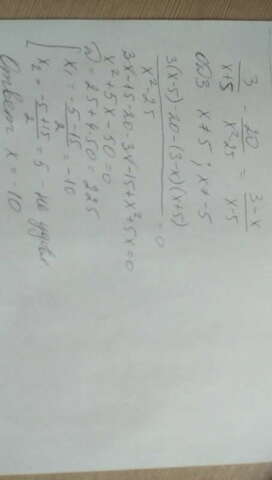 3/(x+5) - 20/(x²-25) = (3-x)/(x-5)
ОДЗ x ≠ 5 ; x ≠ -5
(3(x-5)-20-(3-x)(x+5))/(x²-25) = 0
3x-15-20-3x-15+x²+5x=0
x²+5x-50=0
D = 25+4·50 = 225
x₁ = (-5-15)/2 = -10
x₂ = (-5+15)/2 = 5 - не удовл
Ответ x = -10